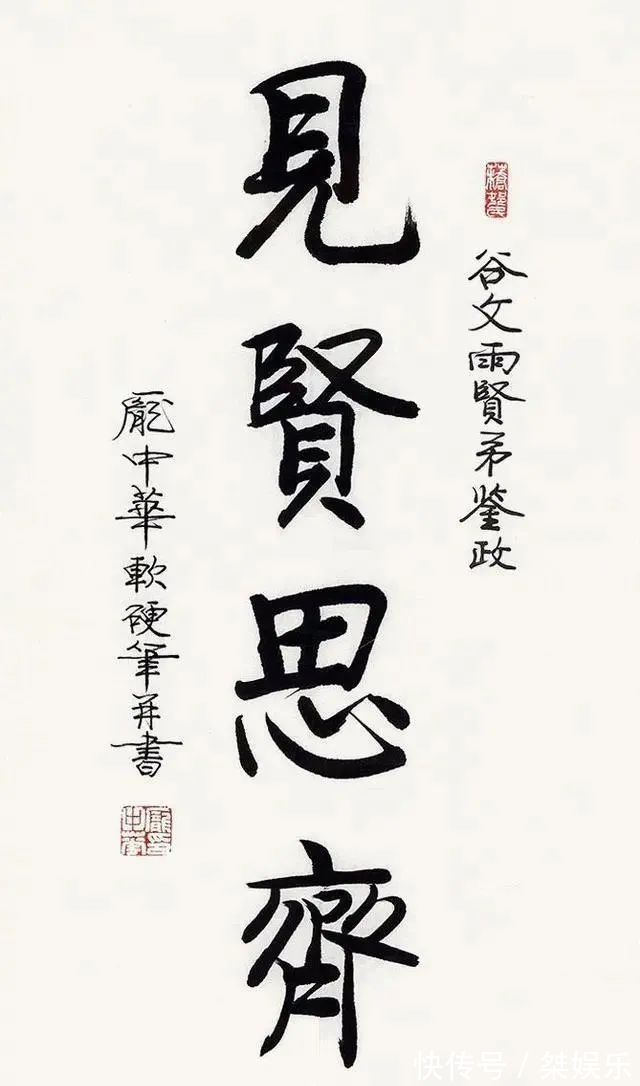 谷文雨賢弟鉴政
見賢思齊
龐中華軟硬筆并書
快传号/桀娱乐